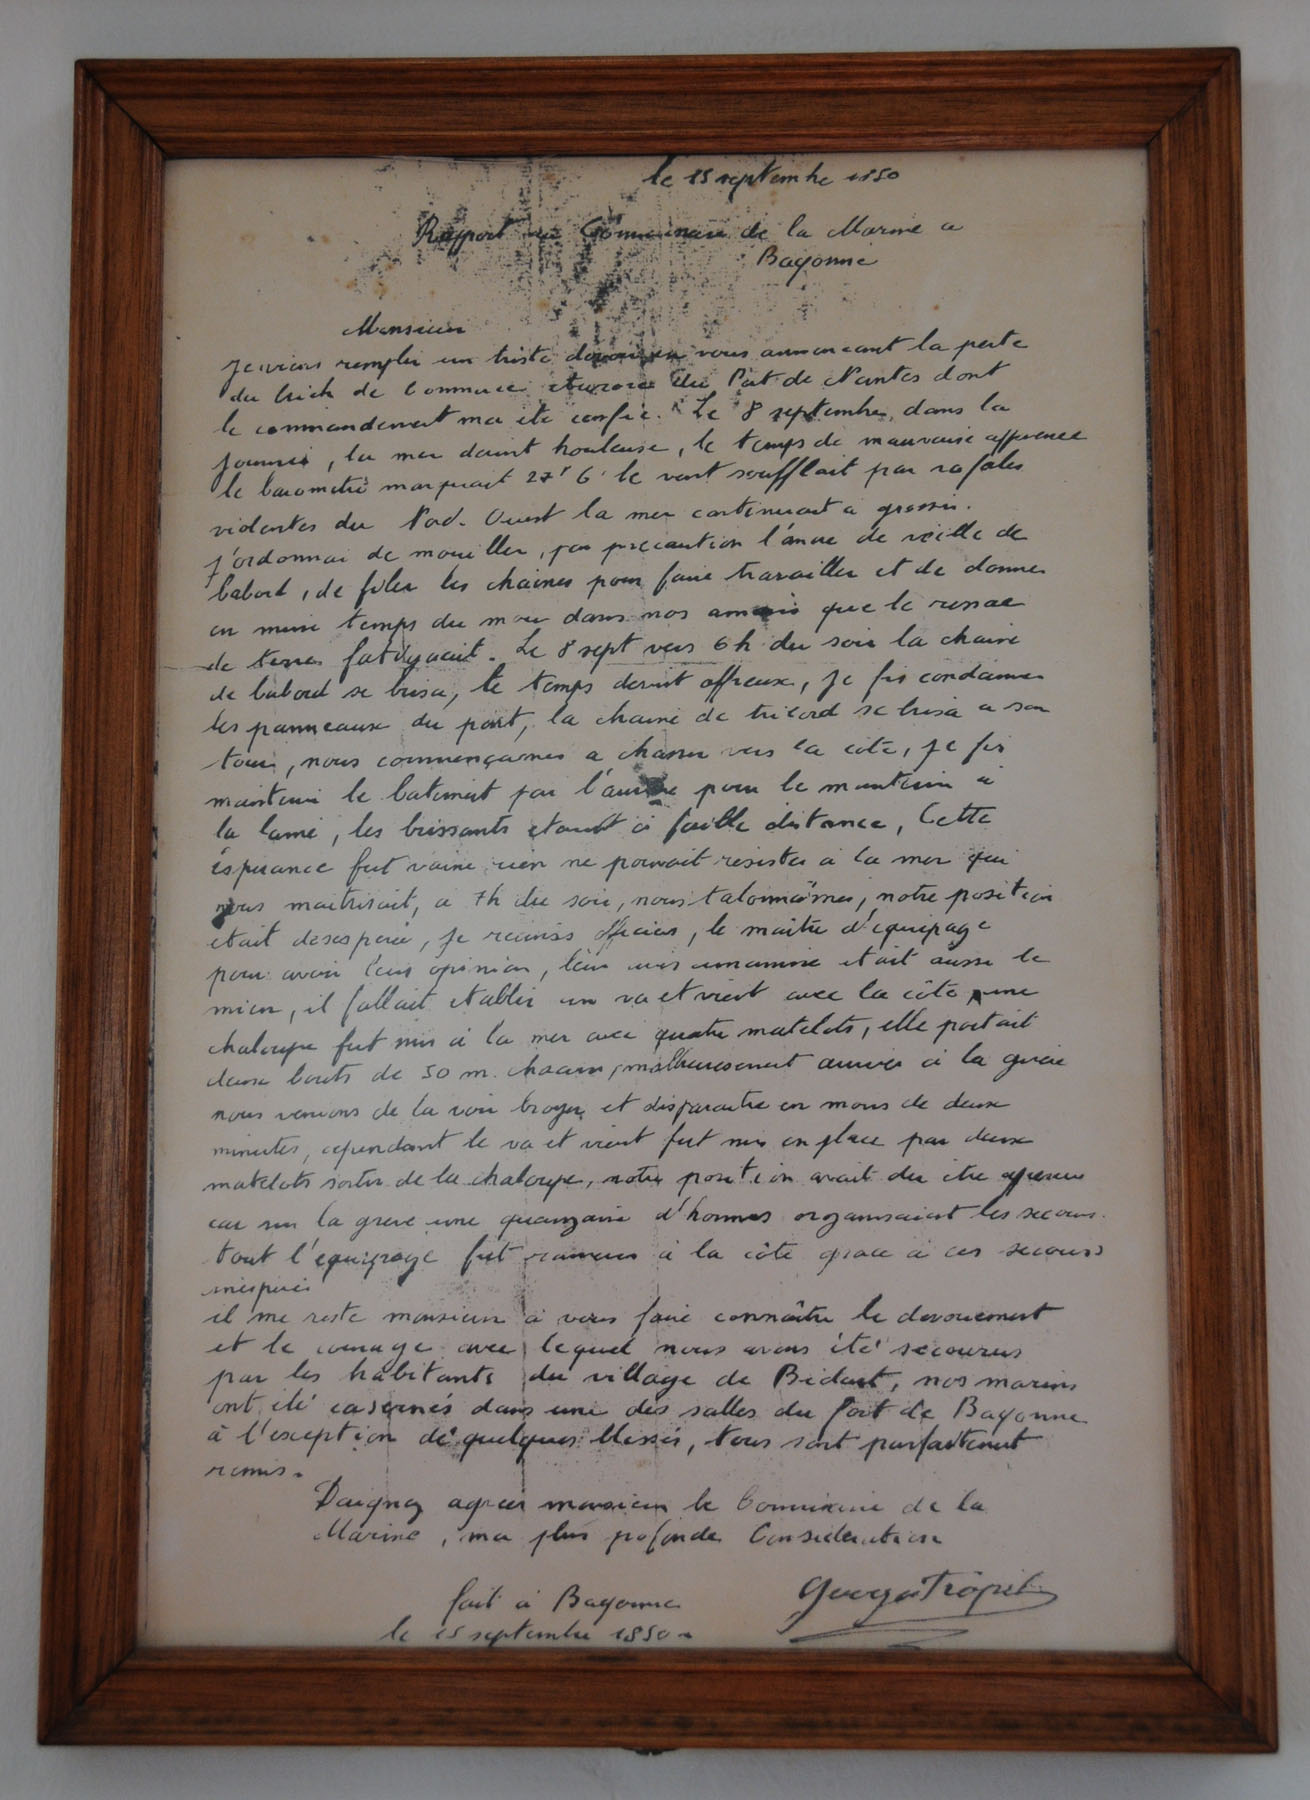 le 15 septembre 1850
Rapport au Commissaire de la Marine a
Bayonne
Monsieur
Je viens remplir un triste devoir en vous annoncant la perte
du brick de Commerce Aurore du Port de Nantes dont
le commandement ma été confié. Le 8 septembre, dans la
journée, la mer devint houleuse, le temps de mauvaise apparence
le baromètre marquait 27' 6' le vent soufflait par rafales
violentes du Nord-Ouest la mer continuait a grossir.
J'ordonnai de mouiller, par precaution l'ancre de veille de
babord, de filer les chaines pour faire travailler et de donner
en meme temps du mou dans nos amarres que le ressac
de terre fatiguait. Le 8 sept vers 6h du soir la chaine
de babord se brisa, le temps devint affreux, je fis condamner
les panneaux du pont, la chaine de tribord se brisa a son
tour, nous commençames a chasser vers la côte, je fis
maintenir le batiment par l'ancre pour le maintenir à
la lame, les brissants etant à faible distance, Cette
ésperance fut vaine rien ne pouvait resister à la mer qui
nous maitrisait, a 7h du soir, nous talonnâmes, notre position
etait desesperée, je reunis officiers, le maître d'équipage
pour avoir leur opinion, leur avis unanime etait aussi le
mien, il fallait etablir un va et vient avec la côte, une
chaloupe fut mis à la mer avec quatre matelots, elle portait
deux bouts de 50 m. chacun, malheureusement arrivée à la grève
nous venions de la voir broyer et disparaitre en moins de deux
minutes, cependant le va et vient fut mis en place par deux
matelots sortis de la chaloupe, notre position avait du etre
car sur la greve une quinzaine d'hommes organisaient les secours.
tout l'équipage fut ramener à la côte grace à ces secours
inesperés
il me reste monsieur à vous faire connaître le devouement
et le courage avec lequel nous avons été secourus
par les habitants du village de Bidart, nos marins
ont été casernés dans une des salles du fort de Bayonne
à l'exception de quelques blessés, tous sont parfaitement
remis.
Daignez agréer monsieur le Commissaire de la
Marine, ma plus profonde Consideration
fait à Bayonne
le 15 septembre 1850
Georges Tropit